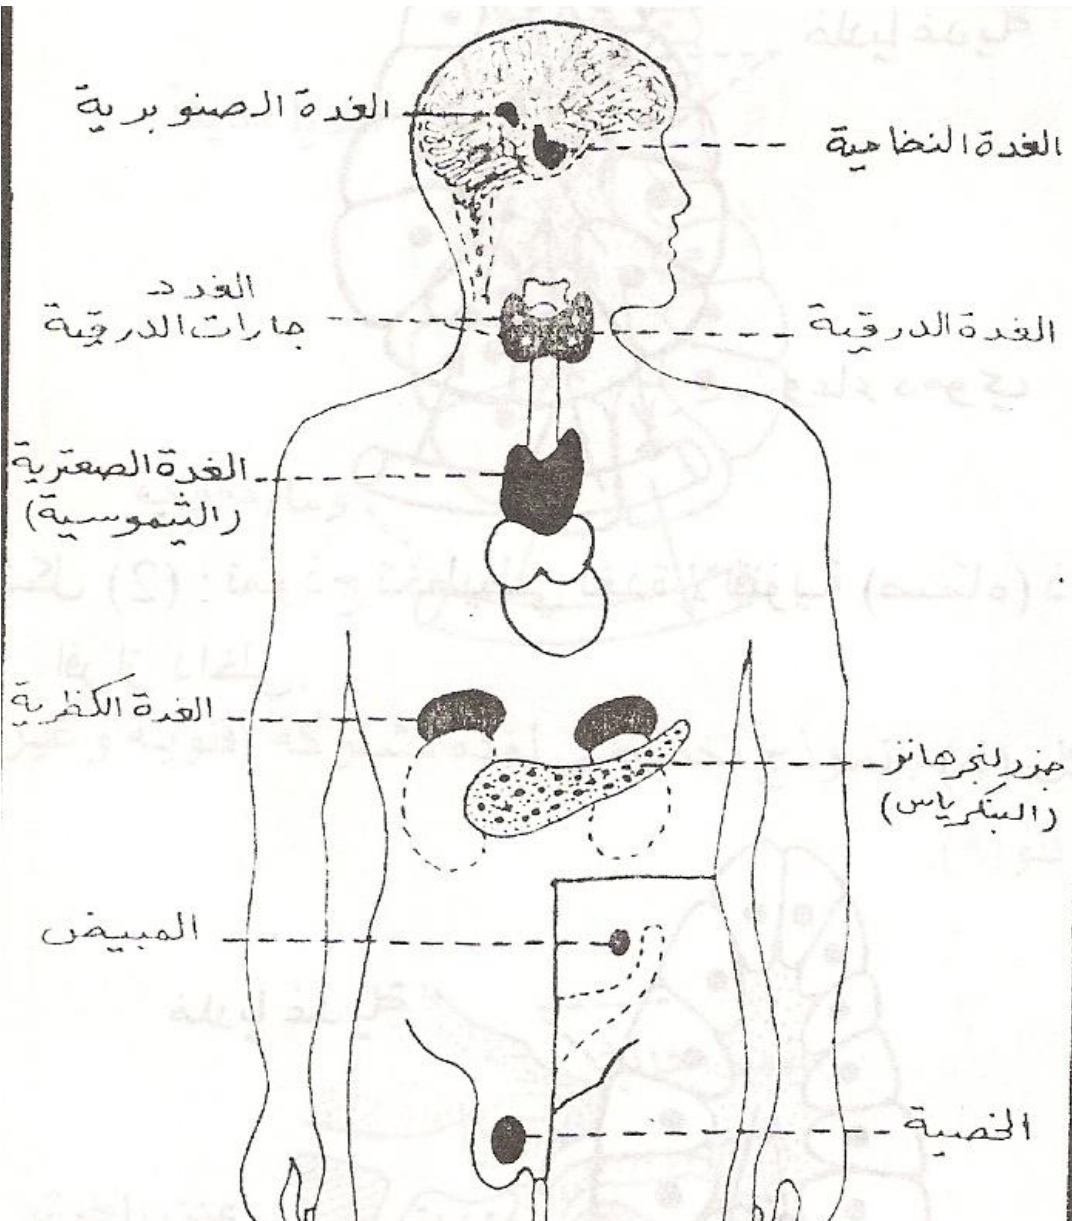 الغدة الصنوبرية
الغدة النخامية
الغدد
جارات الدرقية
الغدة الدرقية
الغدة الصعترية
(الثيموسية)
الغدة الكظرية
جزر لنجرهانز
(البنكرياس)
المبيض
الخصية
خلايا غدية
وعاء دموي
خلايا غدية